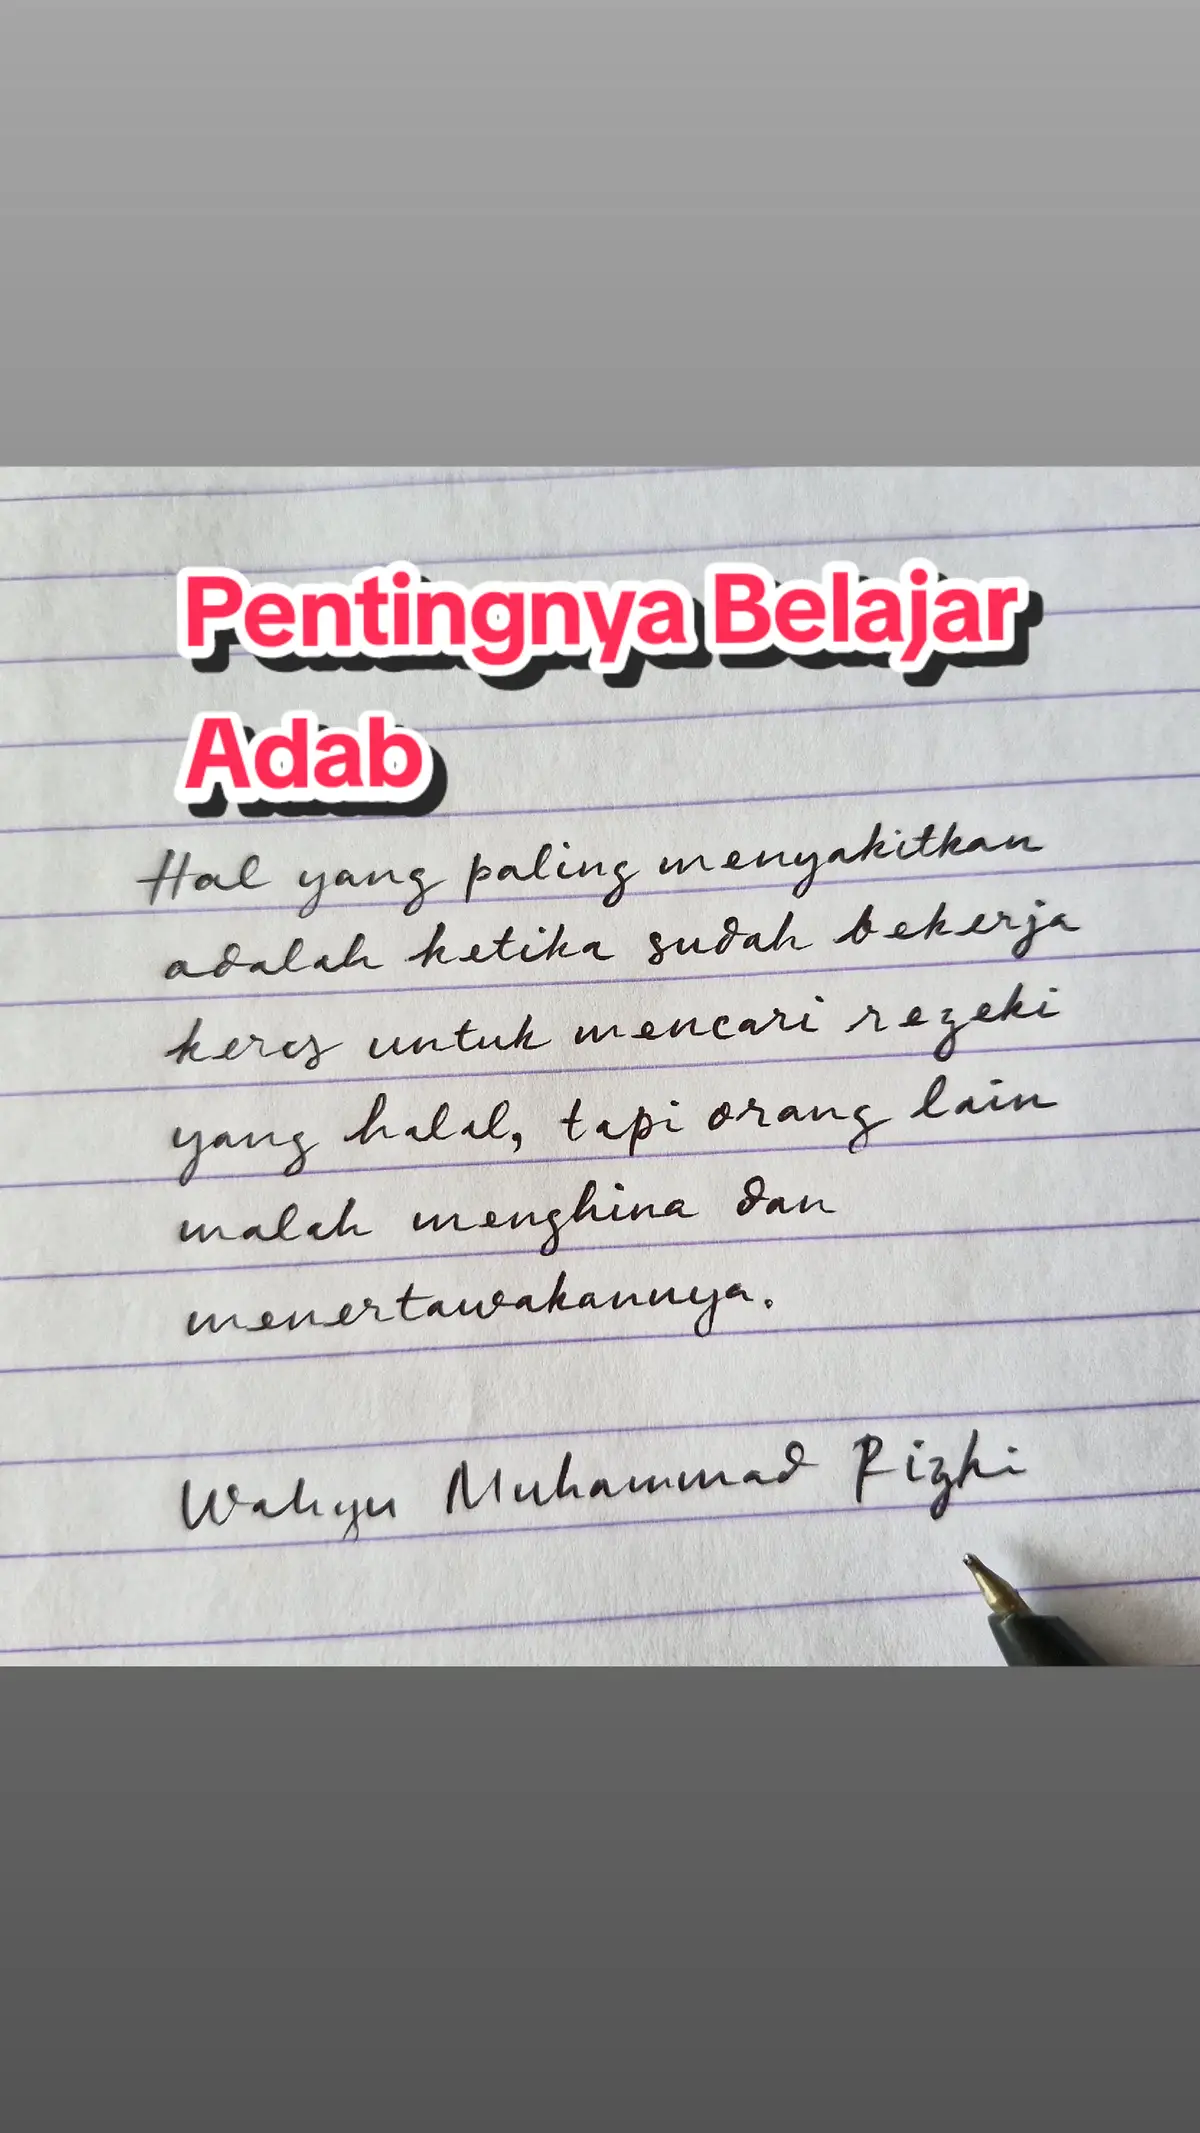 Pentingnya Belajar
Adab
Hal yang paling menyakitkan
adalah ketika sudah bekerja
keras untuk mencari rezeki
yang halal, tapi orang lain
malah menghina dan
menertawakannya.
Wahyu Muhammad Rizki